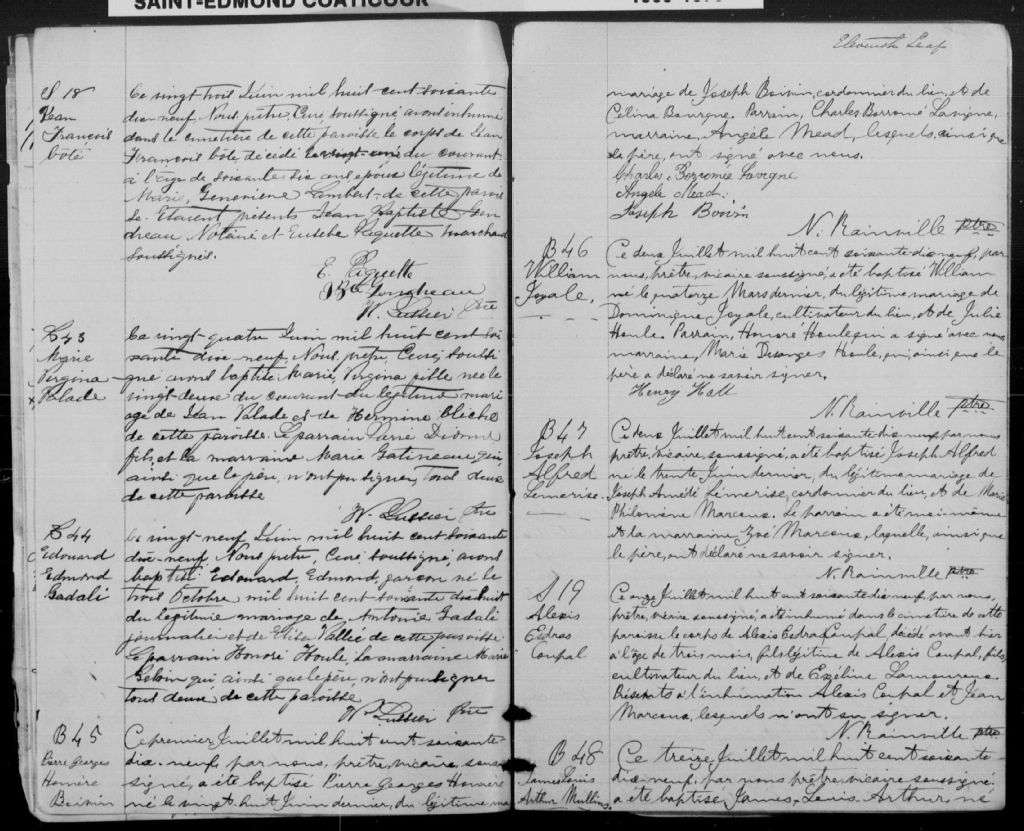 SAINT-EDMOND COATICOOK
S 18
Jean
François
Côté
Ce vingt trois Juin mil huit cent soixante
dix neuf, Nous, prêtre, Curé soussigné, avons inhumé
dans le cimetière de cette paroisse le corps de Jean
François Côté décédé le vingt-un du courant
à l'âge de soixante dix ans, époux légitime de
Marie Geneviève Lambert de cette parois
se. Etaient présents Jean Baptiste Gen
dreau Notaire et Eusèbe Paquette Marchand
soussignés.
E. Paquette
J.Bte Gendreau
W. Lussier Ptre
B43
Marie
Virgina
Valade
Ce vingt-quatre Juin mil huit cent soi
xante dix neuf, Nous, prêtre, Curé, soussi
gné avons baptisé Marie, Virgina fille née le
vingt-deux du courant du légitime mari
age de Jean Valade et de Hermine
de cette paroisse. Le parrain Dionne
fils, et la marraine Marie Gatineau qui,
ainsi que le père, n'ont pu signer, tous deux
de cette paroisse
W. Lussier Ptre
B44
Edouard
Edmond
Gadali
Ce vingt-neuf Juin mil huit cent soixante
dix-neuf, Nous prêtre, Curé, soussigné, avons
baptisé Edouard, Edmond, garçon né le
trois Octobre mil huit cent soixante dix huit
du légitime mariage de Antoine Gadali
journalier et de Eliza Vallée de cette paroisse
Le parrain Honoré Houle, la marraine Marie
qui ainsi que le père, n'ont pu signer
tous deux de cette paroisse
W. Lussier Ptre
B45
Pierre Georges
Honoré
Boivin
Ce premier Juillet mil huit cent soixante
dix-neuf, par nous, prêtre, vicaire, sous
signé, a été baptisé Pierre Georges Honoré
né le vingt huit Juin dernier, du légitime ma
Eleventh Leaf
mariage de Joseph Boivin, cordonnier du lieu, et de
Célina Bourque. Parrain, Charles Borromé Lavigne,
marraine, Angèle Mead, lesquels, ainsi que
le père, ont signé avec nous.
Charles Borromée Lavigne
Angèle Mead.
Joseph Boivin
N. Rainville ptre
B46
William
Joyale.
Ce deux Juillet mil huit cent soixante dix neuf, par
nous, prêtre, vicaire soussigné, a été baptisé William
né le quatorze Mars dernier, du légitime mariage de
Dominique Joyale, cultivateur du lieu, et de Julie
Houle. Parrain, Honoré Houle qui a signé avec nous
marraine, Marie Desanges Houle, qui, ainsi que le
père a déclaré ne savoir signer.
Henry Hall
N. Rainville ptre
B47
Joseph
Alfred
Lemerise.
Ce deux Juillet mil huit cent soixante dix neuf par nous
prêtre, vicaire, soussigné, a été baptisé Joseph Alfred
né le trente Juin dernier, du légitime mariage de
Joseph Amédé Lemerise, cordonnier du lieu, et de Marie
Philomène Marcoux. Le parrain a été moi-même
et la marraine Zoé Marcoux, laquelle, ainsi que
le père, ont déclaré ne savoir signer.
N. Rainville ptre
S 19
Alexis
Esdras
Coupal
Ce onze Juillet mil huit cent soixante dix neuf par nous,
prêtre, vicaire soussigné, a été inhumé dans le cimetière de cette
paroisse le corps de Alexis Esdras Coupal, décédé avant hier
à l'âge de trois mois, fils légitime de Alexis Coupal, fils,
cultivateur du lieu, et de Exélina Lamoureux.
Présents à l'inhumation Alexis Coupal et Jean
Marcoux, lesquels n'ont su signer.
N. Rainville ptre
B48
James Louis
Arthur Mullins
Ce treize Juillet mil huit cent soixante
dix-neuf, par nous prêtre, vicaire soussigné,
a été baptisé James, Louis, Arthur, né